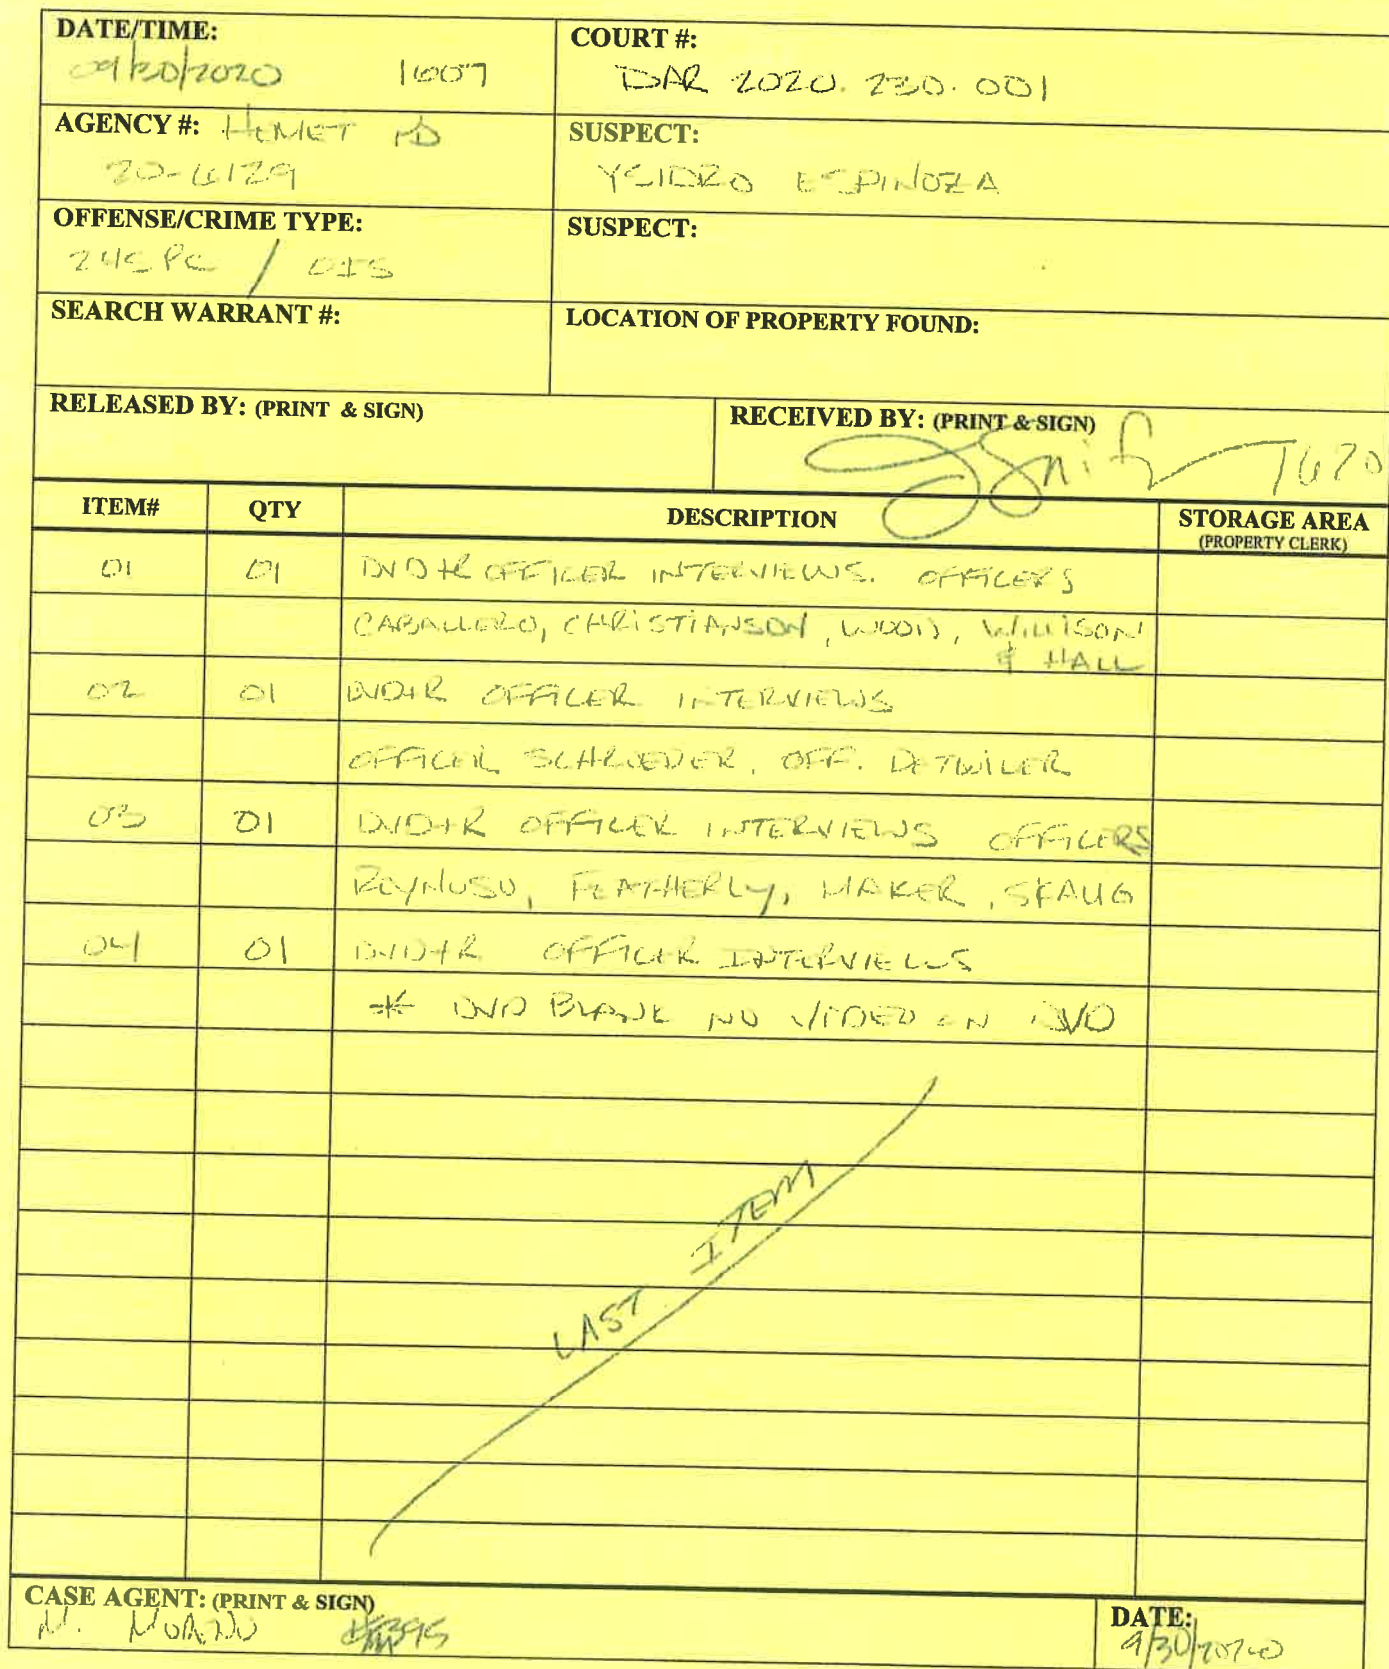 DATE/TIME: COURT #:
09/30/2020 1607 DAR 2020. 230. 001
AGENCY #: HEMET PD SUSPECT:
20-6129 YSIDRO ESPINOZA
OFFENSE/CRIME TYPE: SUSPECT:
245 PC / OIS
SEARCH WARRANT #: LOCATION OF PROPERTY FOUND:
RELEASED BY: (PRINT & SIGN) RECEIVED BY: (PRINT & SIGN)
ITEM# QTY DESCRIPTION STORAGE AREA
(PROPERTY CLERK)
01 01 DVD+R OFFICER INTERVIEWS. OFFICERS
CABALLERO, CHRISTIANSON, WOOD, WILLISON
& HALL
02 01 DVD+R OFFICER INTERVIEWS
OFFICER SCHROEDER, OFF. DETWILER
03 01 DVD+R OFFICER INTERVIEWS OFFICERS
REYNOSO, FEATHERLY, MAKER, SKAUG
04 01 DVD+R OFFICER INTERVIEWS
* DVD BLANK NO VIDEO ON DVD
LAST ITEM
CASE AGENT: (PRINT & SIGN) DATE:
9/30/2020